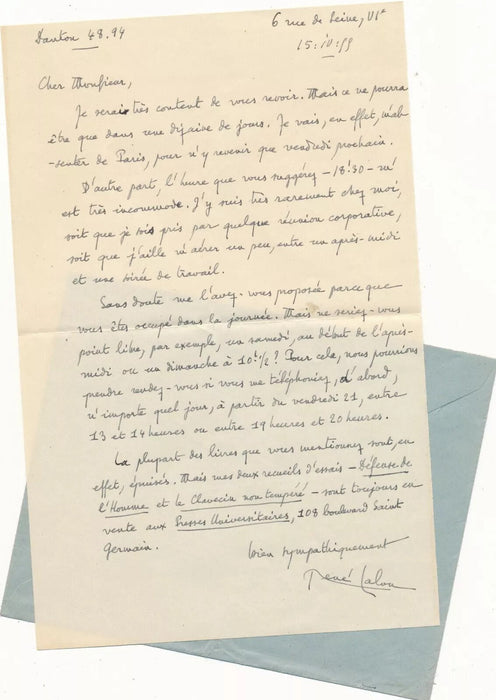 Danton 48.94
6 rue de Seine, VIe
Cher Monsieur,
Je serais très content de vous revoir. Mais ce ne pourra
être que dans une dizaine de jours. Je vais, en effet, m'ab-
-senter de Paris, pour n'y revenir que vendredi prochain.
D'autre part, l'heure que vous suggérez – 18h30 – m'
est très incommode. J'y suis très rarement chez moi,
soit que je sois pris par quelque réunion corporative,
soit que j'aille m'aérer un peu, entre un après-midi
et une soirée de travail.
Sans doute me l'avez-vous proposée parce que
vous êtes occupé dans la journée. Mais ne seriez-vous
point libre, par exemple, un samedi, au début de l'après-
midi ou un dimanche à 10h1/2? Pour cela, nous pourrions
prendre rendez-vous si vous me téléphoniez, d'abord,
n'importe quel jour, à partir du vendredi 21, entre
13 et 14 heures ou entre 19 heures et 20 heures.
La plupart des livres que vous mentionnez sont, en
effet, épuisés. Mais mes deux recueils d'essais – Défense de
l'Homme et le Clavecin non tempéré – sont toujours en
vente aux Presses Universitaires, 108 boulevard Saint
Germain.
bien sympathiquement
René Lalou